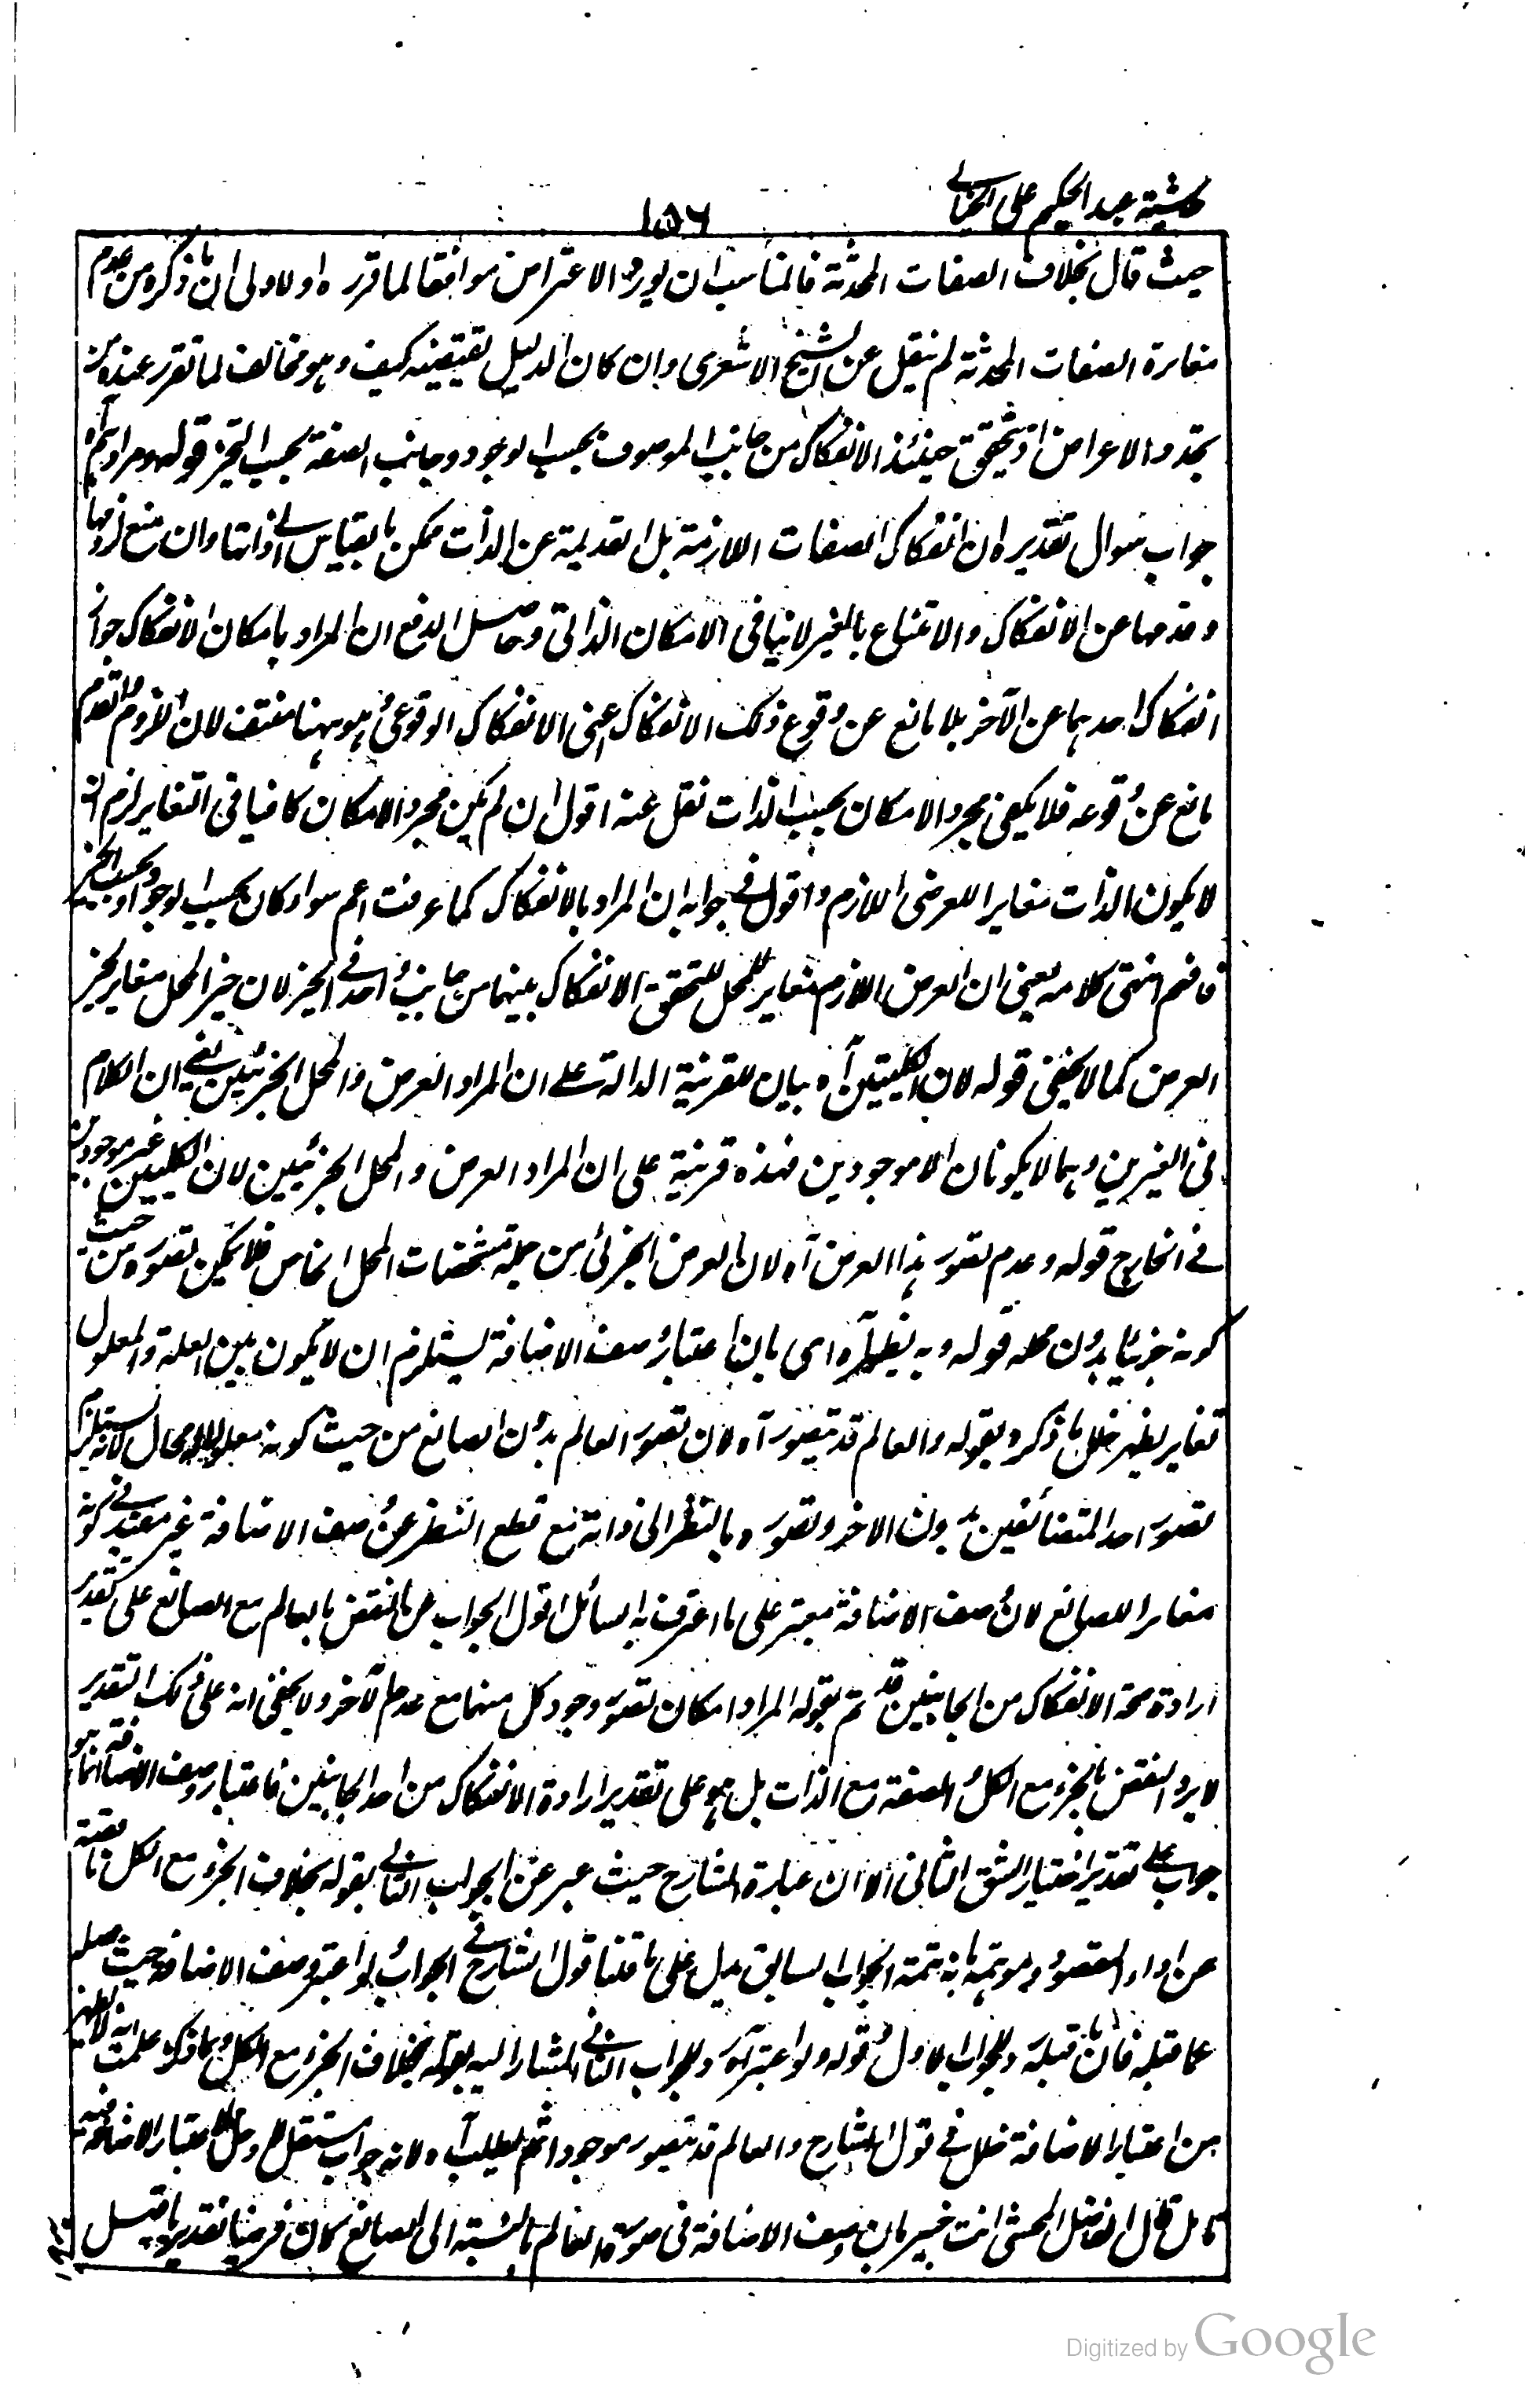 حاشية عبد الحكيم على الخيالي
١٥٦
حيث قال بخلاف الصفات المحدثة فالمناسب ان يورد الاعتراض موافقا لما قرره اولا ولى ان ما ذكره من عدم
مغايرة الصفات المحدثة لم ينقل عن الشيخ الاشعرى وان كان الدليل يقتضيه كيف وهو مخالف لما تقرر عنده من
تجدد الاعراض اذ يتحقق حينئذ الانفكاك من جانب الموصوف بحسب الوجود وجانب الصفة بحسب التحيز قوله ومرادهم آه
جواب سوال تقديره ان انفكاك الصفات اللازمة بل القديمة عن الذات ممكن بالقياس الى ذواتها وان منع لزومها
وقدمها عن الانفكاك والامتناع بالغير لا ينافى الامكان الذاتى وحاصل الدفع ان المراد بامكان الانفكاك جواز
انفكاك احدهما عن الآخر بلا مانع عن وقوع ذلك الانفكاك اعنى الانفكاك الوقوعى وهو ههنا منتف لان اللزوم والقدم
مانع عن وقوعه فلا يكفى مجرد الامكان بحسب الذات نقل عنه اقول ان لم يكن مجرد الامكان كافيا فى التغاير لزم ان
لا يكون الذات مغايرا للعرضى اللازم واقول فى جوابه ان المراد بالانفكاك كما عرفت اعم سواء كان بحسب الوجود او بحسب الحيز
فافهم انتهى كلامه يعنى ان العرض اللازم مغاير للمحل لتحقق الانفكاك بينهما من جانب واحد فى الحيز لان حيز المحل مغاير لحيز
العرض كما لا يخفى قوله لان الكليتين آه بيان للقرينة الدالة على ان المراد العرض والمحل الجزئيين يعنى ان الكلام
فى الغيرين وهما لا يكونان الا موجودين فهذه قرينة على ان المراد العرض والمحل الجزئيين لان الكليين غير موجودين
فى الخارج قوله وعدم تصور هذا العرض آه لان العرض الجزئى من جملة مشخصات المحل الخاص فلا يمكن تصوره من حيث
كونه جزئيا بدون محله قوله وبه يظهر آه اى بان اعتبار وصف الاضافة يستلزم ان لا يكون بين العلة والمعلول
تغاير يظهر خلل ما ذكره بقوله والعالم قد يتصور آه لان تصور العالم بدون الصانع من حيث كونه معلولا له محال لانه يستلزم
تصور احد المتضائفين بدون الاخر وتصوره بالنظر الى ذاته مع قطع النظر عن وصف الاضافة غير مفيد فى كونه
مغايرا للصانع لان وصف الاضافة معتبر على ما اعترف به السائل اقول الجواب عن النقض بالعالم مع الصانع على تقدير
ارادة صحة الانفكاك من الجانبين قد تم بقوله المراد امكان تصور وجود كل منهما مع عدم الآخر ولا يخفى انه على ذلك التقدير
لا يرد النقض بالجزء مع الكل والصفة مع الذات بل هو على تقدير ارادة الانفكاك من احد الجانبين فاعتبار وصف الاضافة انما هو
جواب على تقدير اختيار الشق الثانى الا ان عبارة الشارح حيث عبر عن الجواب الثانى بقوله بخلاف الجزء مع الكل ناقصة
عن اداء المقصود وموهمة بانه تتمة الجواب السابق يدل على ما قلنا قول الشارح فى الجواب ولو اعتبر وصف الاضافة حيث فصله
عما قبله فان ما قبله رد للجواب الاول وقوله ولو اعتبر آه رد للجواب الثانى المشار اليه بقوله بخلاف الجزء مع الكل وبما ذكرنا علمت انه لا يظهر
من اعتبار الاضافة خلل فى قول الشارح والعالم قد يتصور موجودا ثم يطلب آه لانه جواب مستقل ولا دخل لاعتبار الاضافة فيه
تأمل قال الفاضل المحشى انت خبير بان وصف الاضافة فى صورة العالم بالنسبة الى الصانع كان فرضيا تقديريا قيل